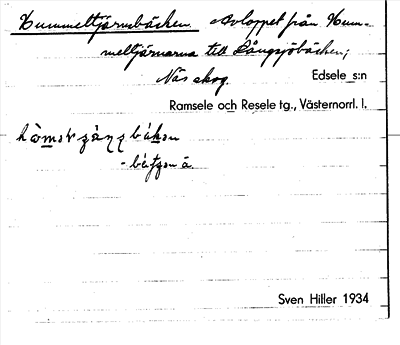 Hummeltjärnsbäcken. Avloppet från Hum-
meltjärnarna till Långsjöbäcken;
Näs skog. Edsele s:n
Ramsele och Resele tg., Västernorrl. l.
Sven Hiller 1934